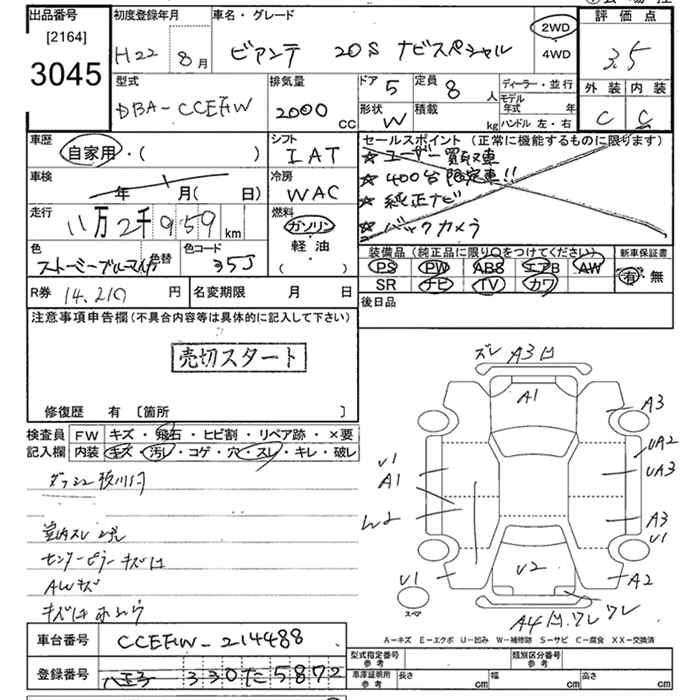 出品番号 初度登録年月 車名・グレード 評価点
[2164] H22 8月 ビアンテ 20S ナビスペシャル 2WD 4WD 3.5
3045
型式 排気量 ドア 5 定員 8人 ディーラー・並行 外装 内装
DBA-CCEFW 2000cc 形状 W 積載 kg モデル年式 年 ハンドル 左・右 C C
車歴 自家用・( ) シフト IAT セールスポイント (正常に機能するものに限ります)
☆ユーザー買取車
車検 年 月( 日) 冷房 WAC ☆400台限定車!!
☆純正ナビ
走行 八万2千959km 燃料 ガソリン ☆バックカメラ
軽油
( )
色 色替 色コード 装備品(純正品に限り○をつけてください) 新車保証書
ストーミーブルーマイカ 35J PS PW ABS エアB AW 有 無
SR ナビ TV カワ
R券 14,210円 名変期限 月 日 後日品
注意事項申告欄(不具合内容等は具体的に記入して下さい)
売切スタート
修復歴 有 〔箇所 〕
検査員 FW キズ・飛石・ヒビ割・リペア跡・×要
記入欄 内装 キズ・汚レ・コゲ・穴・スレ・キレ・破レ
室内スレ
センターピラーキズ
AWキズ
ズレ A3凹
A1
A3
UA2
U1
A1
UA3
W2
A3
U1
U1
U2
A2
スペア
A4凹 ワレ ワレ
A-キズ E-エクボ U-凹み W-補修跡 S-サビ C-腐食 XX-交換済
車台番号 CCEFW-214488
登録番号 八王子 330 た 5872
型式指定番号 参考 類別区分番号 参考
車庫証明用 参考 長さ cm 幅 cm 高さ cm